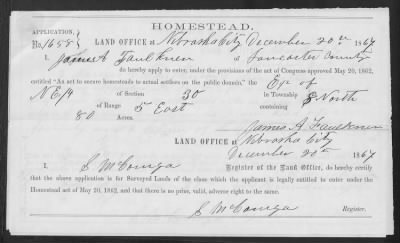 HOMESTEAD.
APPLICATION,
No. 1658
LAND OFFICE at Nebraska City December 20th 1867
I, James A Faulkner of Lancaster County
do hereby apply to enter, under the provisions of the act of Congress approved May 20, 1862,
entitled "An act to secure homesteads to actual settlers on the public domain," the E½ of
NE¼ of Section 30 in Township 8 North
of Range 5 East containing
80 Acres.
James A Faulkner
LAND OFFICE at Nebraska City
December 20th 1867
I, Register of the Land Office, do hereby certify
that the above application is for Surveyed Lands of the class which the applicant is legally entitled to enter under the
Homestead act of May 20, 1862, and that there is no prior, valid, adverse right to the same.
Register.